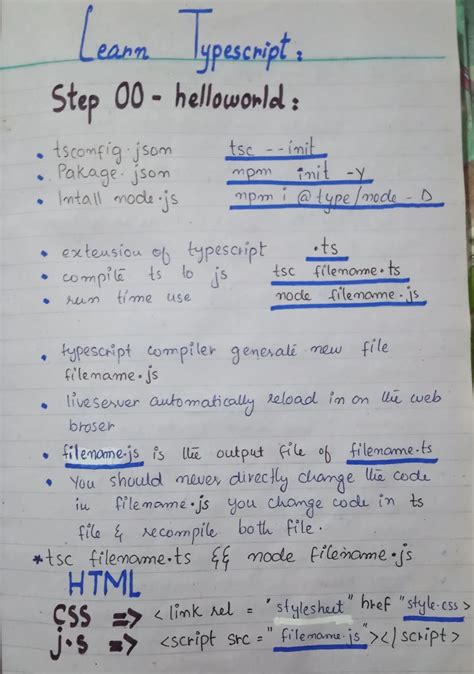 Learn Typescript:
Step 00 - helloworld:
• tsconfig.json tsc --init
• Pakage.json npm init -y
• Intall node.js npm i @type/node -D
• extension of typescript .ts
• compile ts to js tsc filename.ts
• run time use node filename.js
• typescript compiler generate new file
filename.js
• liveserver automatically reload in on the web
broser
• filename.js is the output file of filename.ts
• You should never directly change the code
in filename.js you change code in ts
file & recompile both file.
*tsc filename.ts && node filename.js
HTML
CSS => <link rel = "stylesheet" href "style.css>
j.s => <script src = "filename.js"></script>